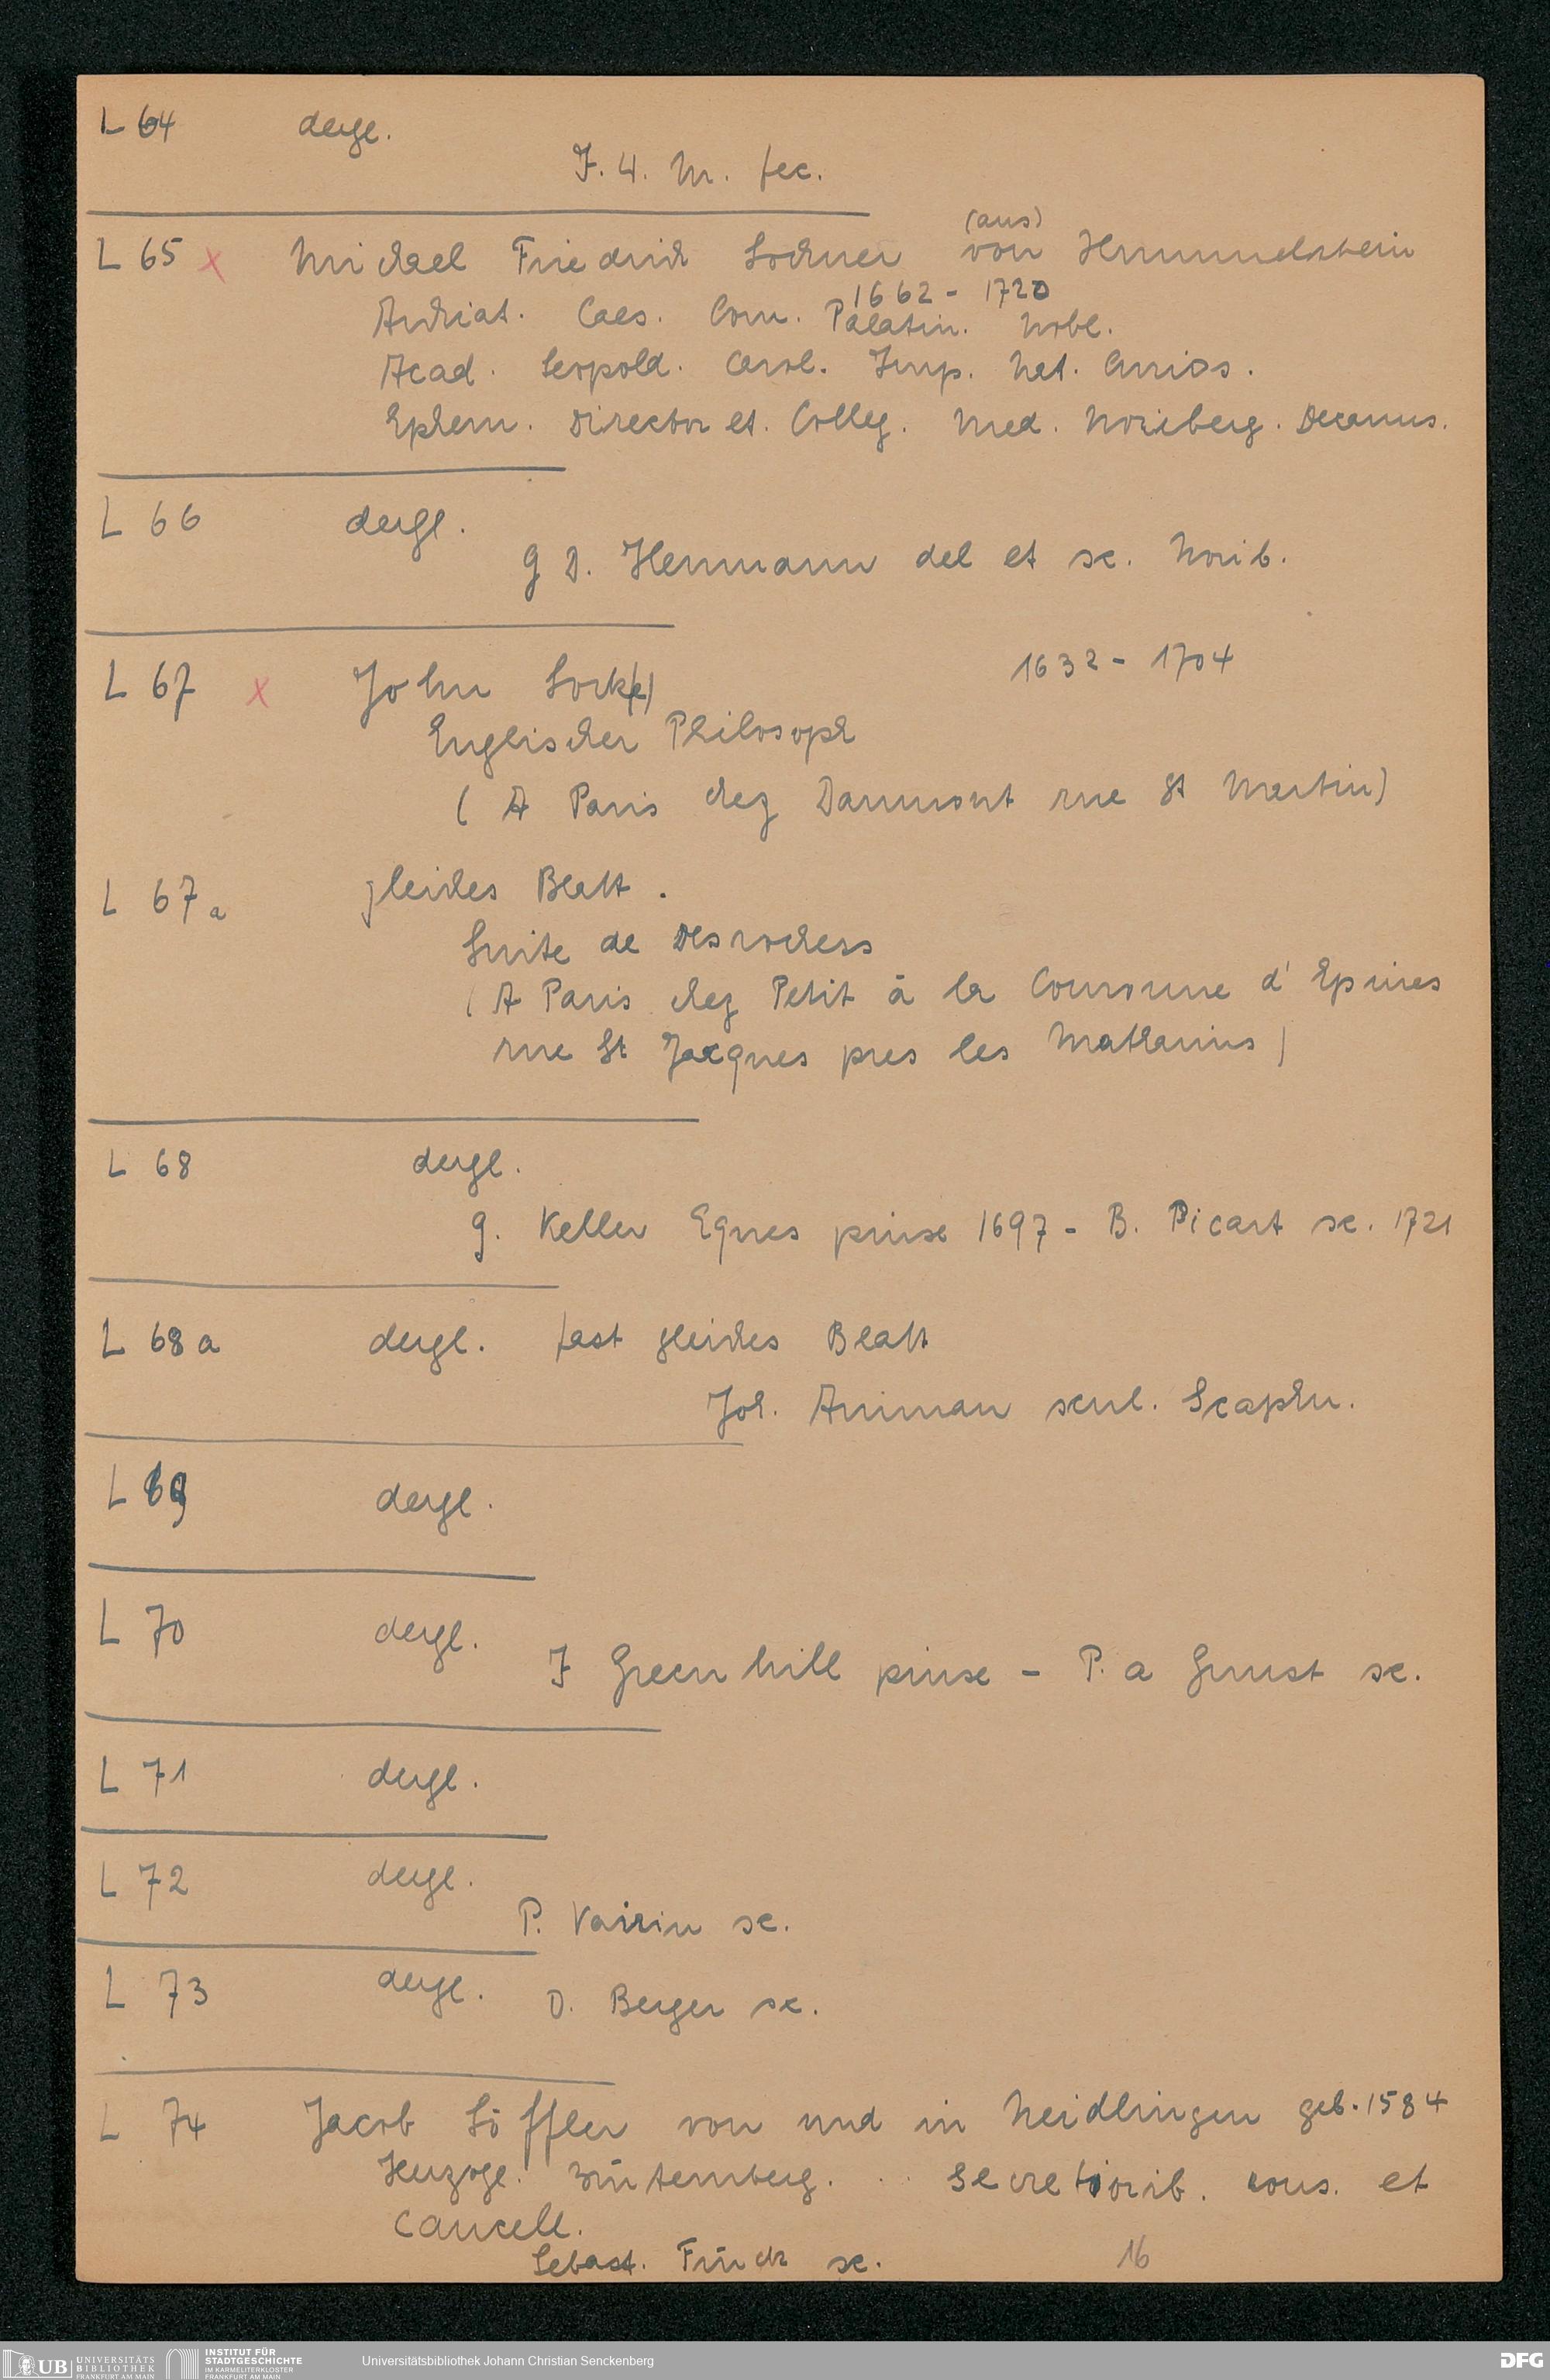 L 64 dergl.
J. H. M. fec.
L 65 x Michael Friedrich Lochner von Hummelstein
(aus)
1662 - 1720
Archiat. Caes. Com. Palatin. Nobl.
Acad. Leopold. Carol. Imp. Nat. Curios.
Ephem. Director et. Colleg. Med. Noriberg. Decanus.
L 66 dergl.
G D. Heumann del et sc. Norib.
L 67 x John Lock(e) 1632 - 1704
Englischer Philosoph
( A Paris chez Daumont rue St Martin)
L 67a gleiches Blatt.
Suite de Desrochers
(A Paris chez Petit à la Couronne d' Epines
rue St Jacques pres les Mathurins)
L 68 dergl.
G. Keller Eques pinx 1697 - B. Picart sc. 1721
L 68a dergl. fast gleiches Blatt
Joh. Amman scul. Scaphu.
L 69 dergl.
L 70 dergl.
J Greenhill pinx - P. a Gunst sc.
L 71 dergl.
L 72 dergl.
P. Vairin sc.
L 73 dergl. D. Berger sc.
L 74 Jacob Löffler von und in Neidlingen geb. 1584
Herzogl. Würtemberg. .. Secretiorib. cons. et
Cancell.
Sebast. Furck sc. 16
UB UNIVERSITÄTS BIBLIOTHEK FRANKFURT AM MAIN
INSTITUT FÜR STADTGESCHICHTE IM KARMELITERKLOSTER FRANKFURT AM MAIN
Universitätsbibliothek Johann Christian Senckenberg
DFG